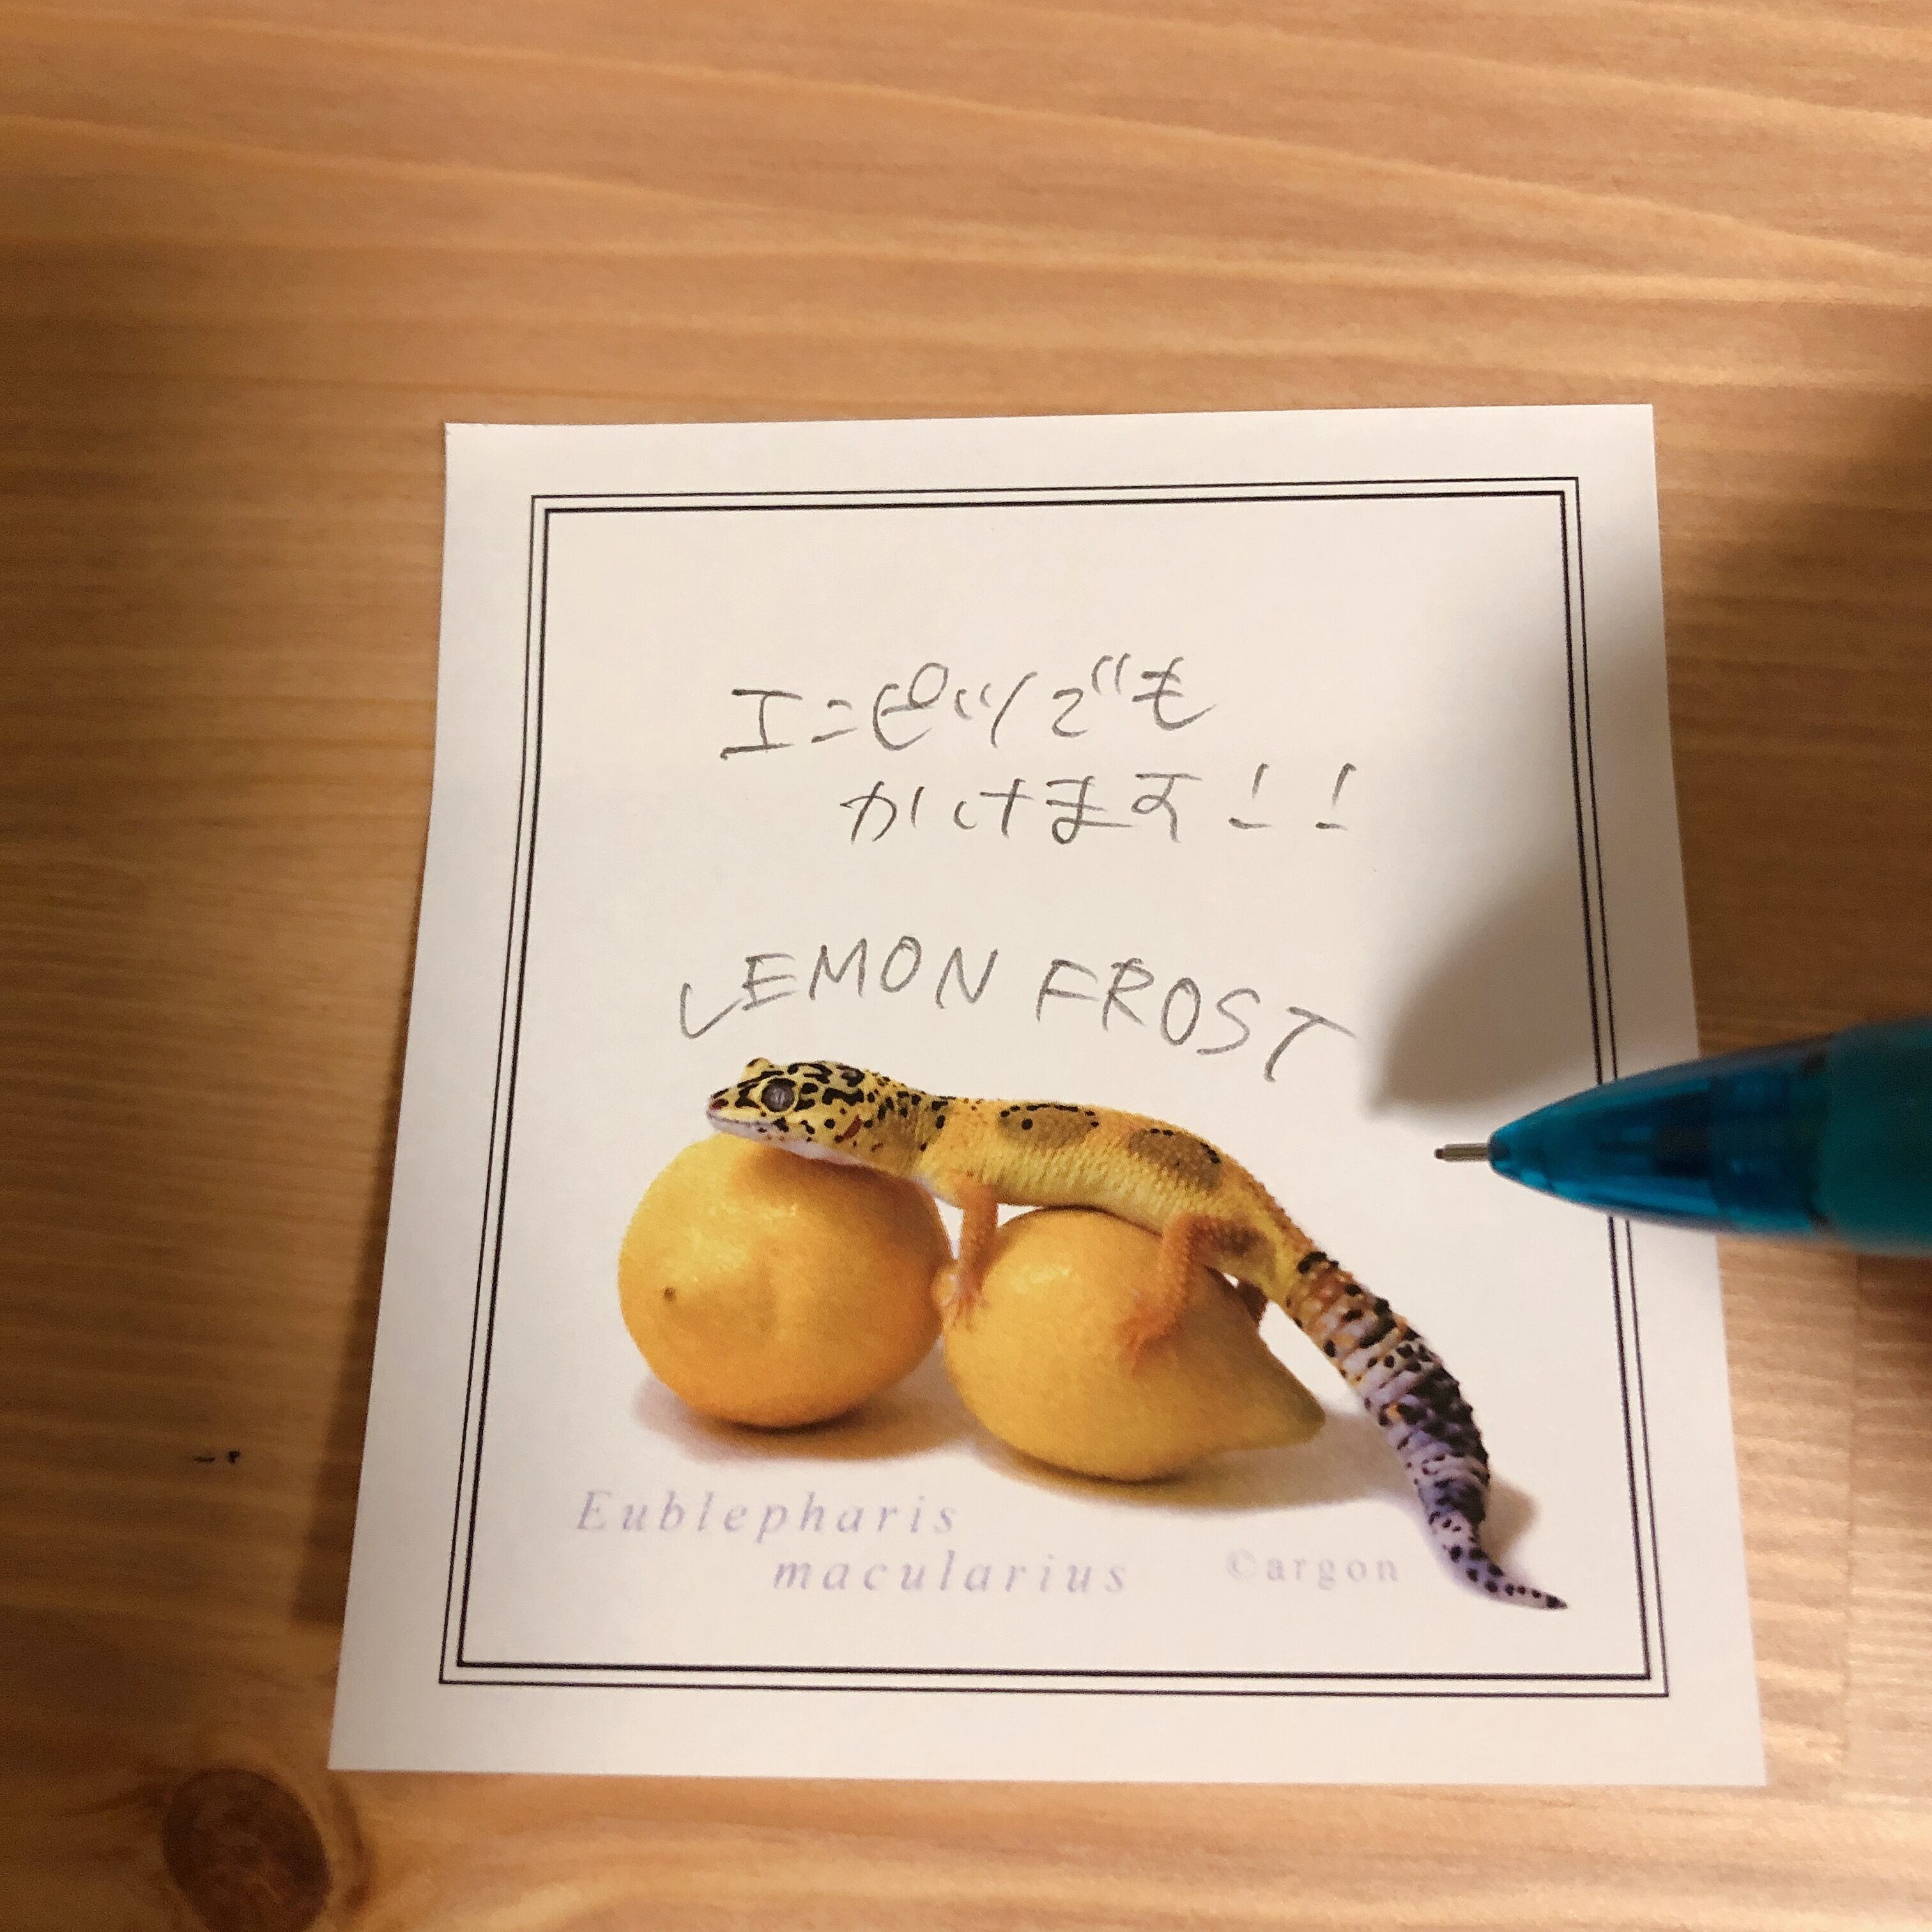 エンピツでも
かけます!!
LEMON FROST
Eublepharis
macularius
©argon